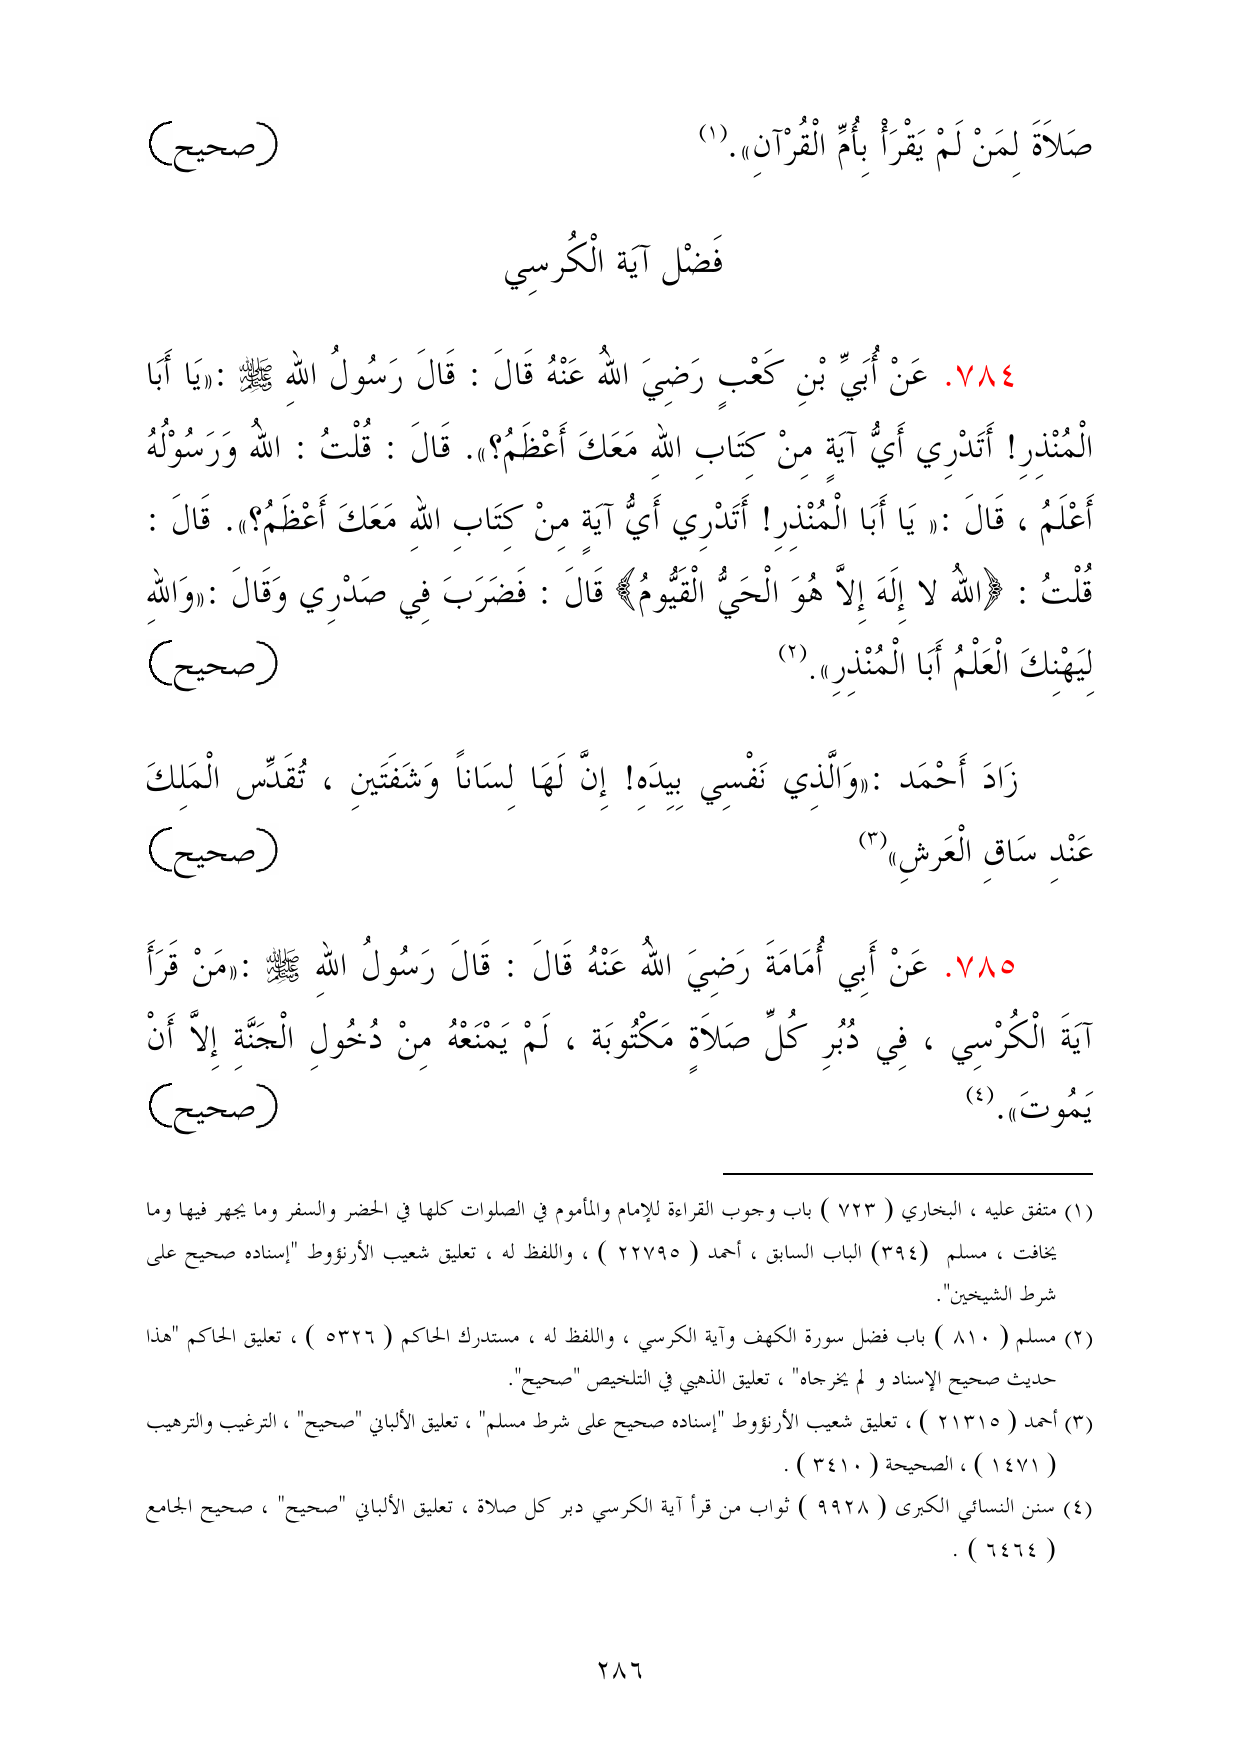 صَلاَةَ لِمَنْ لَمْ يَقْرَأْ بِأُمِّ الْقُرْآنِ». (١) (صحيح)
فَضْل آيَة الْكُرسِي
٧٨٤. عَنْ أُبَيِّ بْنِ كَعْبٍ رَضِيَ اللهُ عَنْهُ قَالَ : قَالَ رَسُولُ اللهِ ﷺ :«يَا أَبَا
الْمُنْذِرِ! أَتَدْرِي أَيُّ آيَةٍ مِنْ كِتَابِ اللهِ مَعَكَ أَعْظَمُ؟». قَالَ : قُلْتُ : اللهُ وَرَسُوْلُهُ
أَعْلَمُ ، قَالَ :« يَا أَبَا الْمُنْذِرِ! أَتَدْرِي أَيُّ آيَةٍ مِنْ كِتَابِ اللهِ مَعَكَ أَعْظَمُ؟». قَالَ :
قُلْتُ : ﴿اللهُ لا إِلَهَ إِلاَّ هُوَ الْحَيُّ الْقَيُّومُ﴾ قَالَ : فَضَرَبَ فِي صَدْرِي وَقَالَ :«وَاللهِ
لِيَهْنِكَ الْعَلْمُ أَبَا الْمُنْذِرِ». (٢) (صحيح)
زَادَ أَحْمَد :«وَالَّذِي نَفْسِي بِيِدَهِ! إِنَّ لَهَا لِسَاناً وَشَفَتَينِ ، تُقَدِّس الْمَلِكَ
عَنْدِ سَاقِ الْعَرشِ»(٣) (صحيح)
٧٨٥. عَنْ أَبِي أُمَامَةَ رَضِيَ اللهُ عَنْهُ قَالَ : قَالَ رَسُولُ اللهِ ﷺ :«مَنْ قَرَأَ
آيَةَ الْكُرْسِي ، فِي دُبُرِ كُلِّ صَلاَةٍ مَكْتُوبَة ، لَمْ يَمْنَعْهُ مِنْ دُخُولِ الْجَنَّةِ إِلاَّ أَنْ
يَمُوتَ». (٤) (صحيح)
(١) متفق عليه ، البخاري ( ٧٢٣ ) باب وجوب القراءة للإمام والمأموم في الصلوات كلها في الحضر والسفر وما يجهر فيها وما
يخافت ، مسلم (٣٩٤) الباب السابق ، أحمد ( ٢٢٧٩٥ ) ، واللفظ له ، تعليق شعيب الأرنؤوط "إسناده صحيح على
شرط الشيخين".
(٢) مسلم ( ٨١٠ ) باب فضل سورة الكهف وآية الكرسي ، واللفظ له ، مستدرك الحاكم ( ٥٣٢٦ ) ، تعليق الحاكم "هذا
حديث صحيح الإسناد و لم يخرجاه" ، تعليق الذهبي في التلخيص "صحيح".
(٣) أحمد ( ٢١٣١٥ ) ، تعليق شعيب الأرنؤوط "إسناده صحيح على شرط مسلم" ، تعليق الألباني "صحيح" ، الترغيب والترهيب
( ١٤٧١ ) ، الصحيحة ( ٣٤١٠ ) .
(٤) سنن النسائي الكبرى ( ٩٩٢٨ ) ثواب من قرأ آية الكرسي دبر كل صلاة ، تعليق الألباني "صحيح" ، صحيح الجامع
( ٦٤٦٤ ) .
٢٨٦